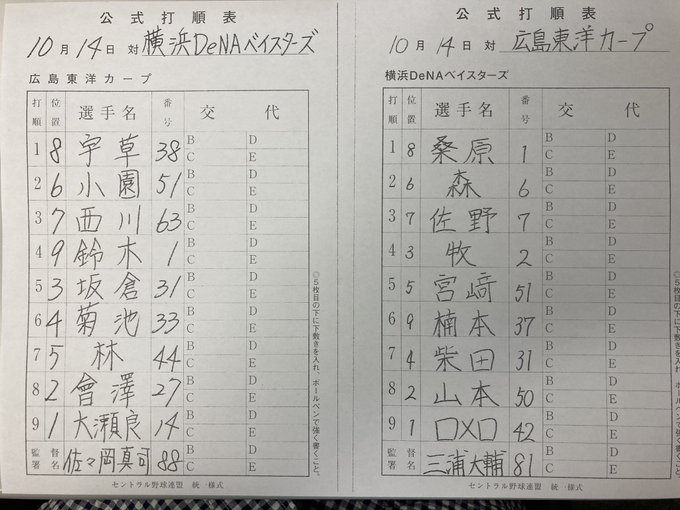 公式打順表
10月14日 対 横浜DeNAベイスターズ
広島東洋カープ
打順 位置 選手名 番号 交代
1 8 宇草 38 B C D E
2 6 小園 51 B C D E
3 7 西川 63 B C D E
4 9 鈴木 1 B C D E
5 3 坂倉 31 B C D E
6 4 菊池 33 B C D E
7 5 林 44 B C D E
8 2 會澤 27 B C D E
9 1 大瀬良 14 B C D E
監督署名 佐々岡真司 88 B C D E
◎5枚目の下に下敷きを入れ、ボールペンで強く書くこと。
セントラル野球連盟 統一様式
公式打順表
10月14日 対 広島東洋カープ
横浜DeNAベイスターズ
打順 位置 選手名 番号 交代
1 8 桑原 1 B C D E
2 6 森 6 B C D E
3 7 佐野 7 B C D E
4 3 牧 2 B C D E
5 5 宮﨑 51 B C D E
6 9 楠本 37 B C D E
7 4 柴田 31 B C D E
8 2 山本 50 B C D E
9 1 ロメロ 42 B C D E
監督署名 三浦大輔 81 B C D E
◎5枚目の下に下敷きを入れ、ボールペンで強く書くこと。
セントラル野球連盟 統一様式